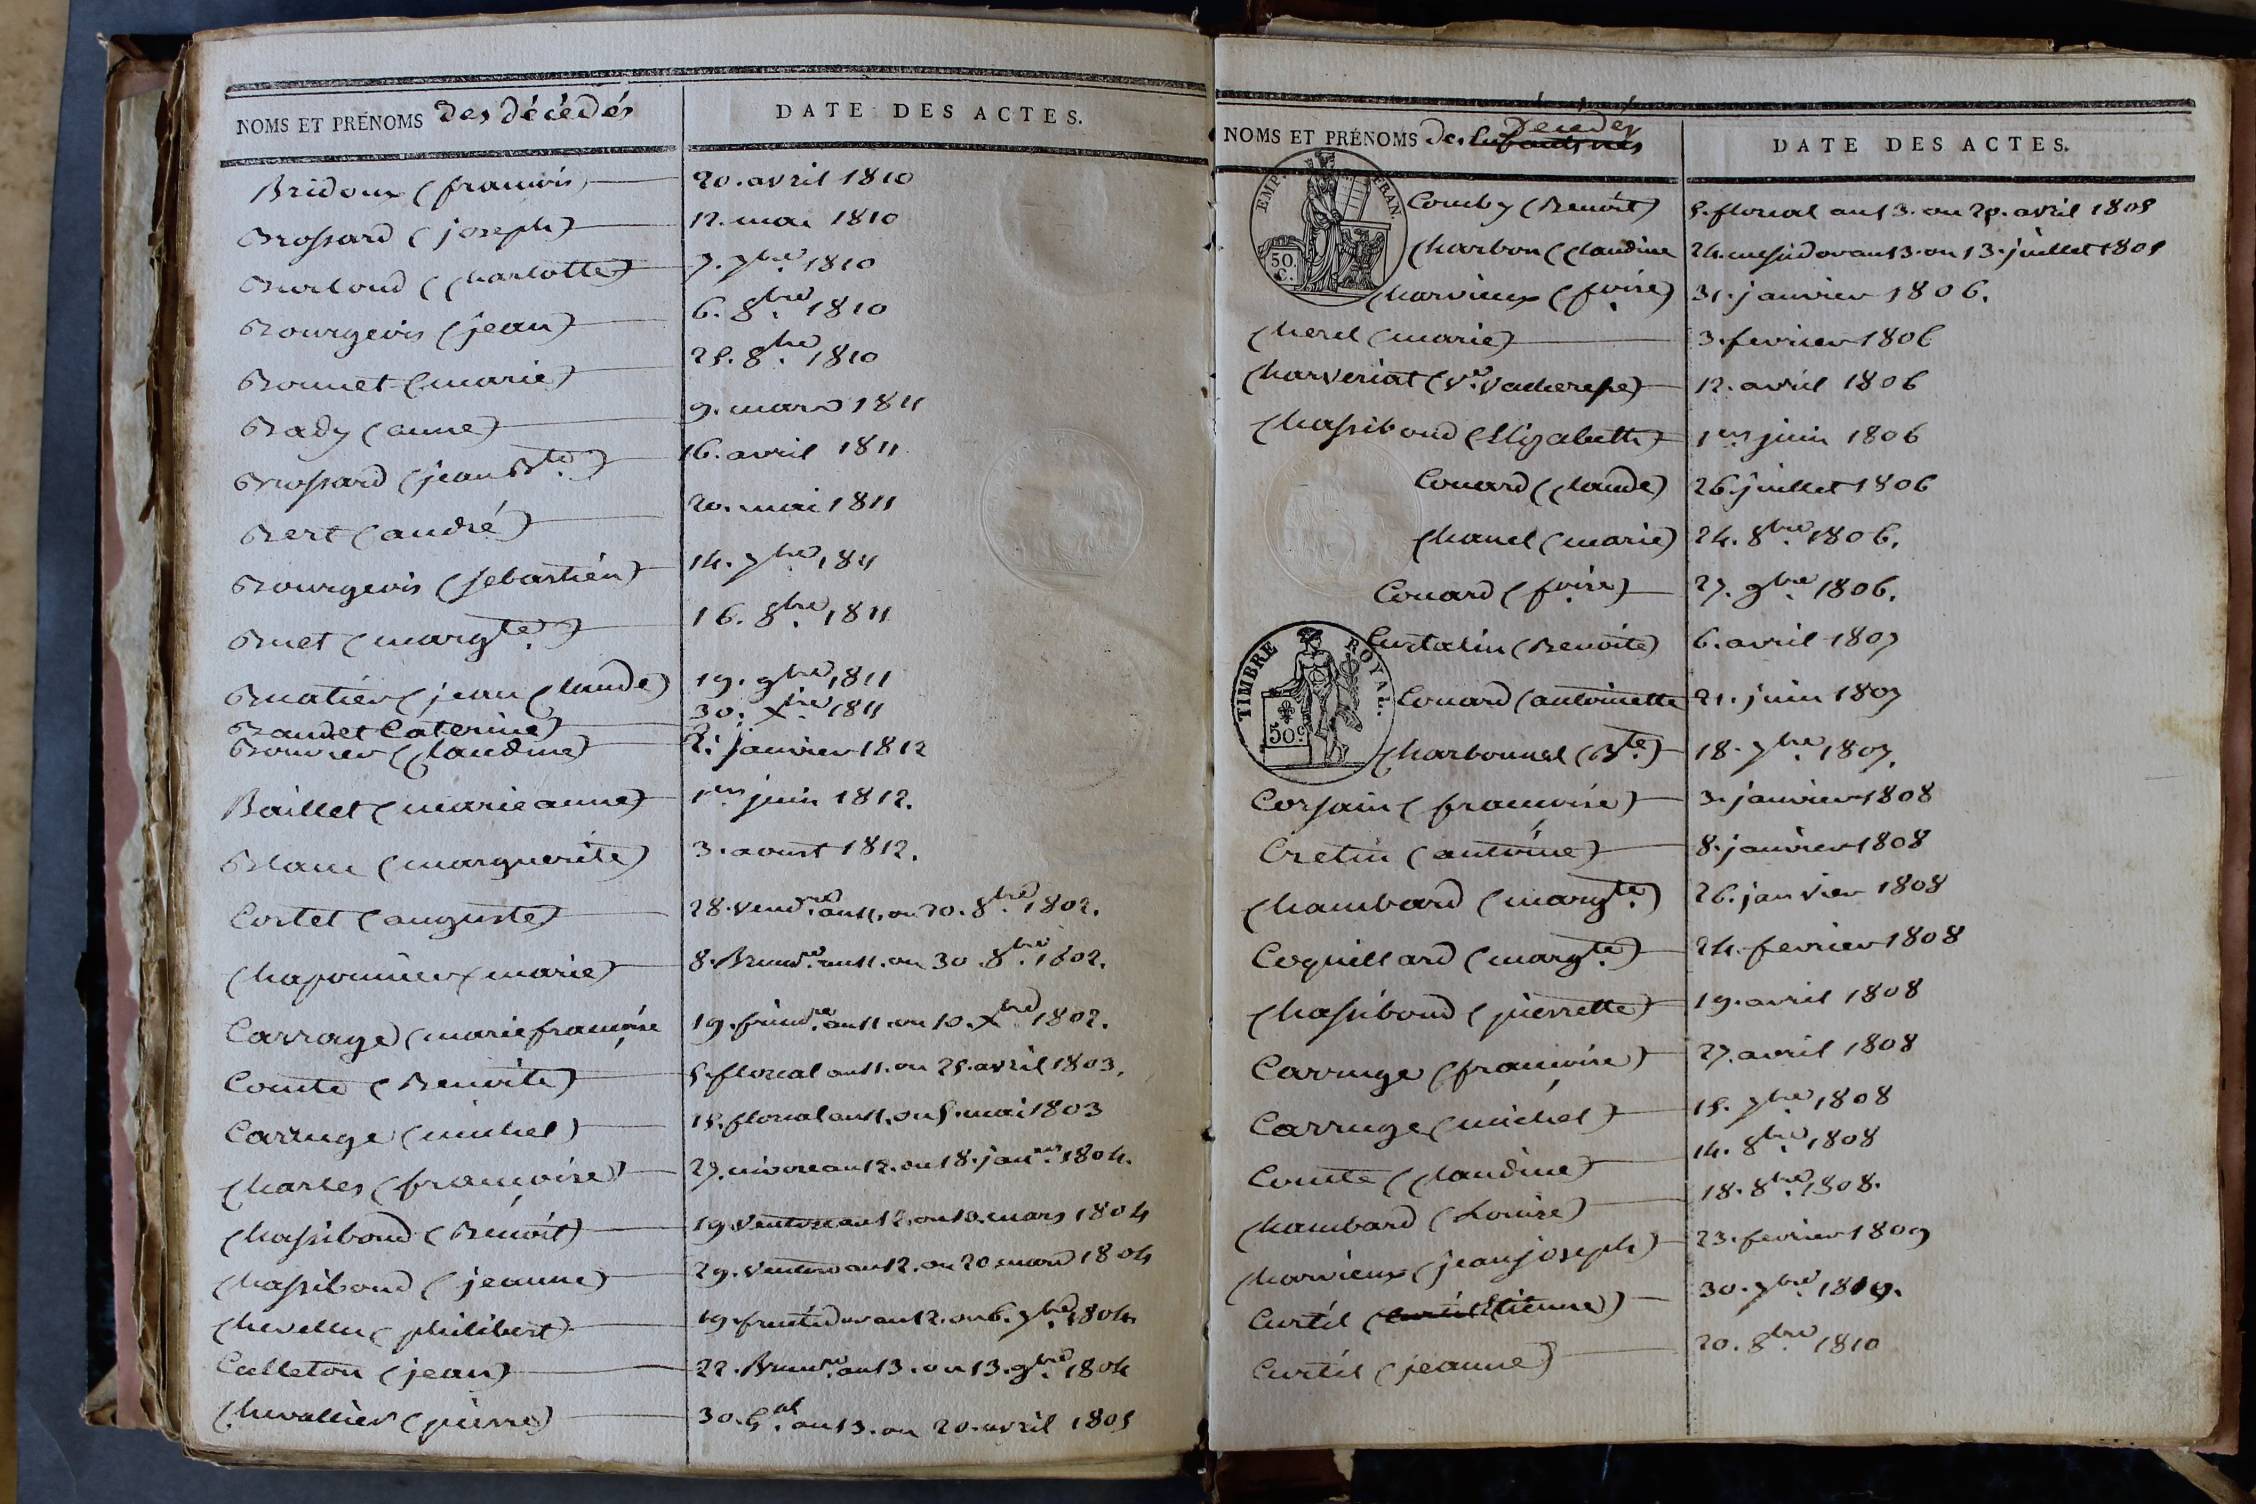 NOMS ET PRÉNOMS des décédés
DATE DES ACTES.
Bridoux (francois) 20. avril 1810
Brossard (joseph) 12. mai 1810
Burloud (Charlotte) 7. 7bre. 1810
Bourgeois (jean) 6. 8bre. 1810
Bonnet (marie) 25. 8bre. 1810
Brady (anne) 9. mars 1811
Brossard (jean Bte.) 16. avril 1811
Bert (andré) 20. mai 1811
Bourgeois (sebastién) 14. 7bre. 1811
Bruet (margte.) 16. 8bre. 1811
Bruatier (jean Claude) 19. 9bre. 1811
Baudet Caterine) 30. Xbre. 1811
Bouvier (Claudine) 2. janvier 1812
Baillet (marie anne) 1er juin 1812.
Blanc (marguerite) 3. aoust 1812.
Cortet (auguste) 28. vendre. an 11. ou 20. 8bre. 1802.
Chaponnier (marie) 8. Brumre. an 11. ou 30. 8bre. 1802.
Carrage (marie françoise 19. frimre. an 11. ou 10. Xbre 1802.
Comte (Benoite) 5. floreal an 11. ou 25. avril 1803.
Carruge (michel) 15. floreal an 11. ou 5. mai 1803
Charles (françoise) 27. nivose an 12. ou 18. janer. 1804.
Chassiboud (Benoit) 19. ventose an 12. ou 10. mars 1804
Chassiboud (jeanne) 29. ventose an 12. ou 20 mars 1804
Chevellu (philibert) 19. fructidor an 12. ou 6. 7bre. 1804
Culleton (jean) 22. Brumre. an 13. ou 13. 9bre. 1804
Chevallier (pierre) 30. Gal. an 13. ou 20. avril 1805
NOMS ET PRÉNOMS des Enfants nés
Décédés
DATE DES ACTES.
EMP. FRAN.
50. C.
Comby (Benoit) 5. floreal an 13. ou 25. avril 1805
Charbon (Claudine 24. messidor an 13. ou 13. juillet 1805
Charvieux (foise) 31. janvier 1806.
Cherel (marie) 3. fevrier 1806
Charveriat (ve. Vacheresse) 12. avril 1806
Chassiboud (Elizabeth) 1er juin 1806
Couard (Claude) 26. juillet 1806
Chanel (marie) 24. 8bre. 1806.
Couard (foise) 27. 9bre. 1806.
Curtalin (Benoite) 6. avril 1807
TIMBRE ROYAL.
50c.
Couard (antoinette 21. juin 1807
Charbonnel (Bte.) 18. 7bre. 1807.
Corsain (françoise) 3. janvier 1808
Cretin (antoine) 8. janvier 1808
Chambard (margte.) 26. janvier 1808
Coquillard (margte.) 24. fevrier 1808
Chassiboud (pierrette) 19. avril 1808
Carruge (françoise) 27. avril 1808
Carruge (michel) 15. 7bre. 1808
Comte (Claudine) 14. 8bre. 1808
Chambard (Louise) 18. 8bre. 1808.
Charvieux (jean joseph) 23. fevrier 1809
Curtil (Etienne) 30. 7bre. 1819.
Curtil (jeanne) 20. 8bre. 1810